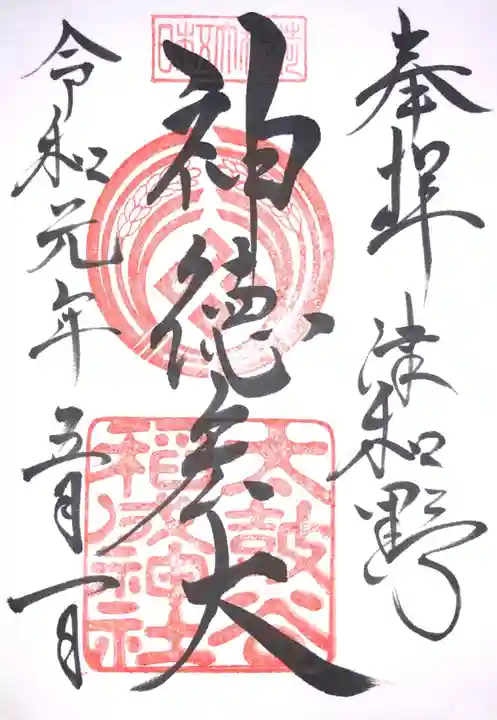 奉拝 津和野
神徳宏大
令和元年 五月一日
日本五大稲荷
太鼓谷
稲成神社